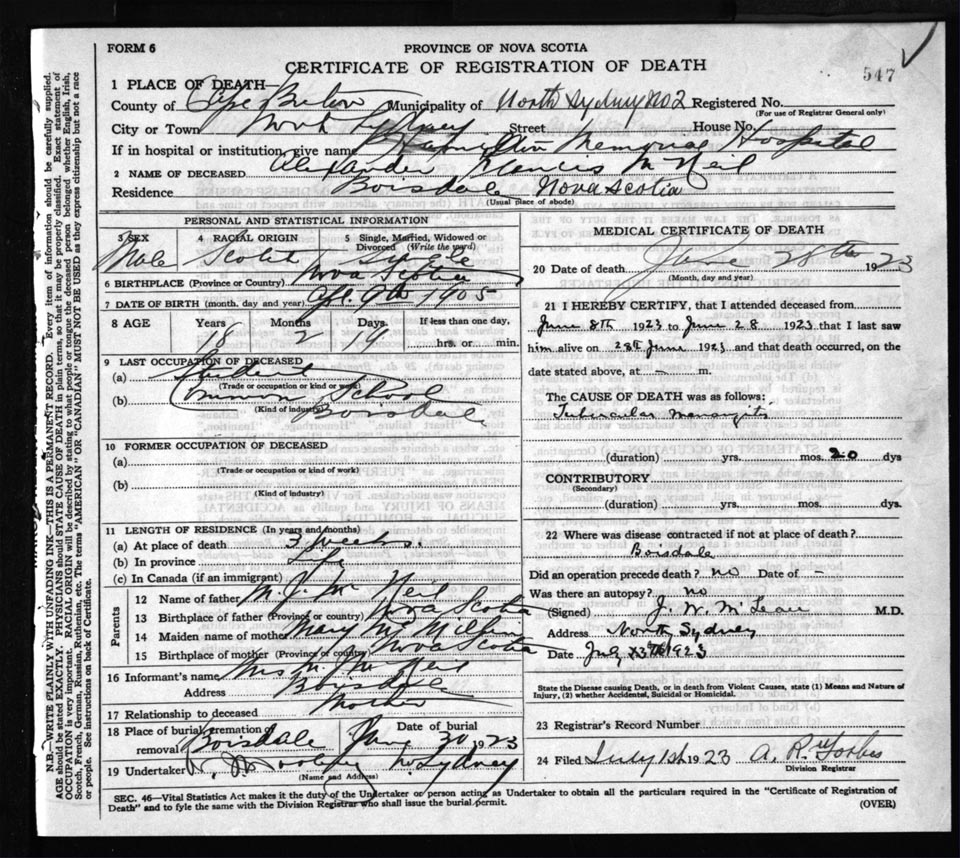 FORM 6
PROVINCE OF NOVA SCOTIA
CERTIFICATE OF REGISTRATION OF DEATH
547
1 PLACE OF DEATH
County of Cape Breton Municipality of North Sydney No 2 Registered No.
(For use of Registrar General only)
City or Town North Sydney Street House No.
If in hospital or institution, give name Hamilton Memorial Hospital
2 NAME OF DECEASED Alexander Francis McNeil
Residence Boisdale Nova Scotia
(Usual place of abode)
PERSONAL AND STATISTICAL INFORMATION
3 SEX Male 4 RACIAL ORIGIN Scotch 5 Single, Married, Widowed or Divorced (Write the word) Single
6 BIRTHPLACE (Province or Country) Nova Scotia
7 DATE OF BIRTH (month, day and year) Apl. 9th 1905
8 AGE Years 18 Months 2 Days 19 If less than one day, hrs. or min.
9 LAST OCCUPATION OF DECEASED
(a) Student
(Trade or occupation or kind of work)
(b) Common School
(Kind of industry) Boisdale
10 FORMER OCCUPATION OF DECEASED
(a)
(Trade or occupation or kind of work)
(b)
(Kind of industry)
11 LENGTH OF RESIDENCE (In years and months)
(a) At place of death 3 weeks.
(b) In province Life
(c) In Canada (if an immigrant)
Parents
12 Name of father M. J. McNeil
13 Birthplace of father (Province or country) Nova Scotia
14 Maiden name of mother Mary
15 Birthplace of mother (Province or country) Nova Scotia
16 Informant's name Mrs M. J. McNeil
Address Boisdale
17 Relationship to deceased Mother
18 Place of burial, cremation or removal Boisdale Date of burial June 30 1923
19 Undertaker N. Sydney
(Name and Address)
MEDICAL CERTIFICATE OF DEATH
20 Date of death June 28th 1923
(Month, day and year)
21 I HEREBY CERTIFY, that I attended deceased from
June 8th 1923 to June 28 1923 that I last saw
him alive on 28th June 1923 and that death occurred, on the
date stated above, at – m.
The CAUSE OF DEATH was as follows:
Tubercular Meningitis
(duration) yrs. mos. 20 dys
CONTRIBUTORY
(Secondary)
(duration) yrs. mos. dys.
22 Where was disease contracted if not at place of death?
Boisdale
Did an operation precede death? no Date of –
Was there an autopsy? no
(Signed) J. W. McLean M.D.
Address North Sydney
Date July 1923
State the Disease causing Death, or in death from Violent Causes, state (1) Means and Nature of
Injury, (2) whether Accidental, Suicidal or Homicidal.
23 Registrar's Record Number
24 Filed July 1st 1923 A. R. Forbes
Division Registrar
SEC. 46—Vital Statistics Act makes it the duty of the Undertaker or person acting as Undertaker to obtain all the particulars required in the "Certificate of Registration of
Death" and to fyle the same with the Division Registrar who shall issue the burial permit.
(OVER)
N.B.—WRITE PLAINLY WITH UNFADING INK—THIS IS A PERMANENT RECORD. Every item of information should be carefully supplied.
AGE should be stated EXACTLY. PHYSICIANS should STATE CAUSE OF DEATH in plain terms, so that it may be properly classified. Exact statement of
OCCUPATION is very important. RACIAL ORIGIN will be described by stating to what people or tongue the deceased person belonged whether English, Irish,
Scotch, French, German, Russian, Ruthenian, etc. The terms "AMERICAN" OR "CANADIAN" MUST NOT BE USED as they express citizenship but not a race
or people. See instructions on back of Certificate.